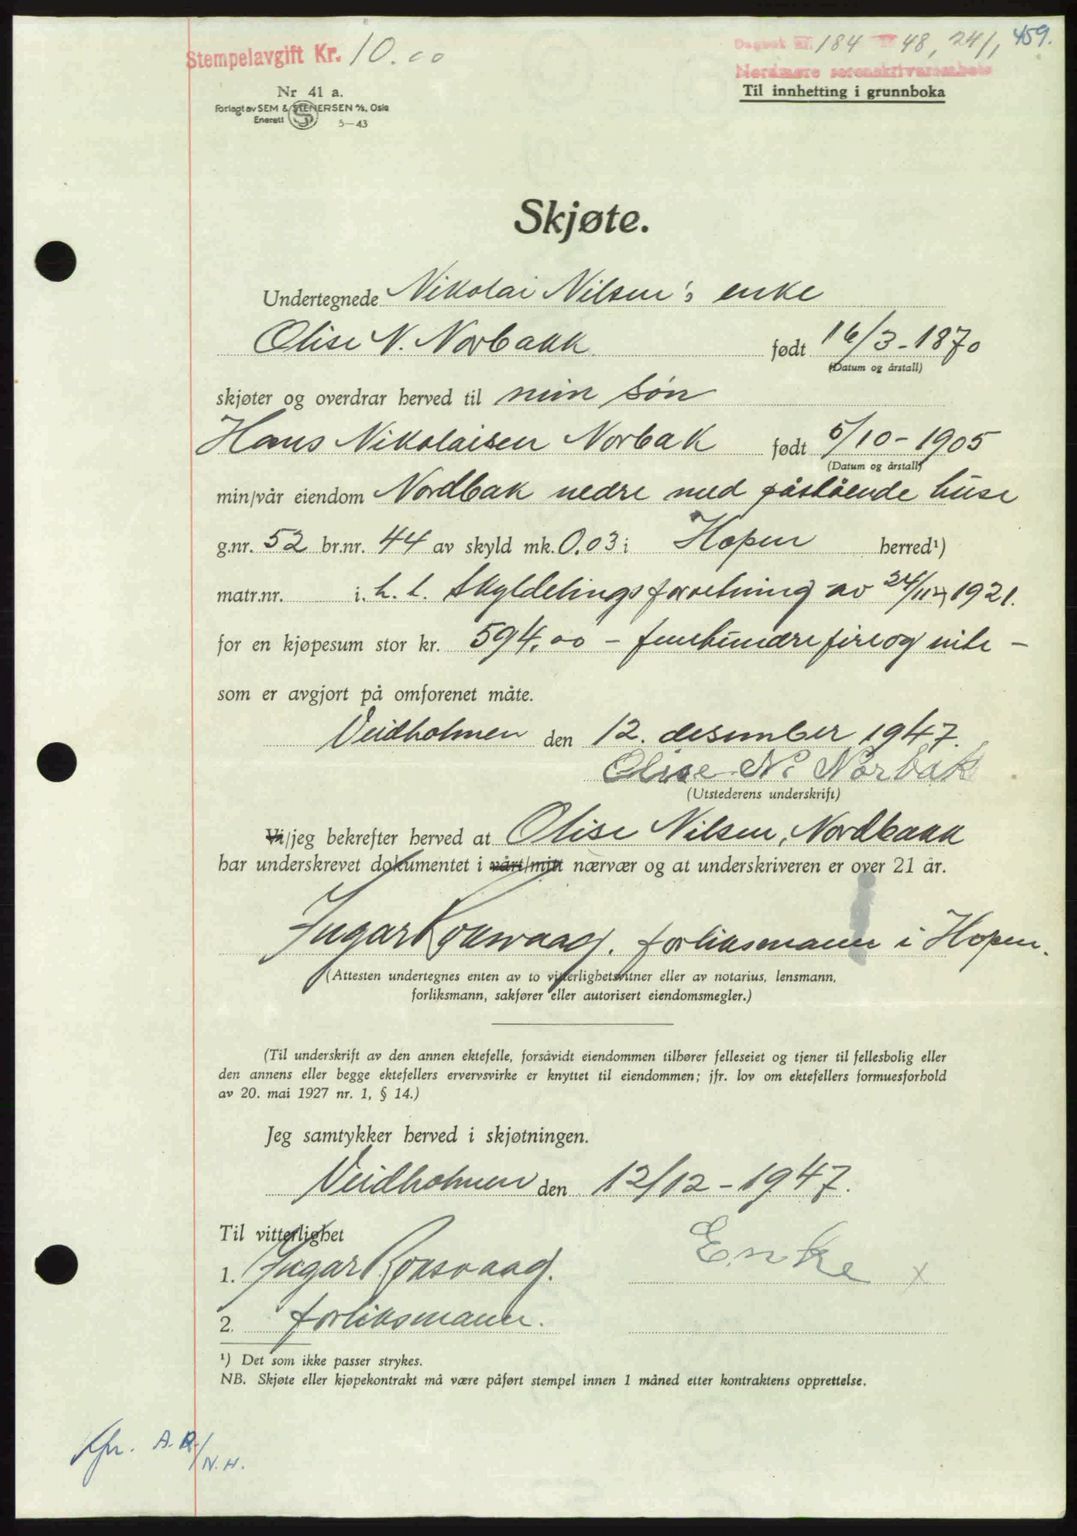 Stempelavgift Kr. 10.00
Dagbok nr. 184 48, 24/1, 459.
Nordmøre sorenskriverembete
Nr 41 a.
Til innhefting i grunnboka
Forlagt av SEM & STENERSEN A/S, Oslo
Enerett 5—43
Skjøte.
Undertegnede Nikolai Nilsen's enke
Olise N. Norbakk født 16/3-1870
(Datum og årstall)
skjøter og overdrar herved til min søn
Hans Nikolaisen Norbak født 5/10-1905
(Datum og årstall)
min/vår eiendom Nordbak nedre med påstående huse
g.nr. 52 br.nr. 44 av skyld mk. 0.03 i Hopen herred¹)
matr.nr. i. h. t. Skyldelingsforretning av 24/11 1921.
for en kjøpesum stor kr. 594,00 - femhundre fireog niti -
som er avgjort på omforenet måte.
Veidholmen den 12. desember 1947.
Olise N. Norbak
(Utstederens underskrift)
Vi/jeg bekrefter herved at Olise Nilsen, Nordbakk
har underskrevet dokumentet i vårt/mitt nærvær og at underskriveren er over 21 år.
Ingar Roksvaag. forliksmann i Hopen.
(Attesten undertegnes enten av to vitterlighetsvitner eller av notarius, lensmann,
forliksmann, sakfører eller autorisert eiendomsmegler.)
(Til underskrift av den annen ektefelle, forsåvidt eiendommen tilhører felleseiet og tjener til fellesbolig eller
den annens eller begge ektefellers ervervsvirke er knyttet til eiendommen; jfr. lov om ektefellers formuesforhold
av 20. mai 1927 nr. 1, § 14.)
Jeg samtykker herved i skjøtningen.
Veidholmen den 12/12-1947.
Til vitterlighet
Enke x
1. Ingar Roksvaag.
2. forliksmann.
¹) Det som ikke passer strykes.
NB. Skjøte eller kjøpekontrakt må være påført stempel innen 1 måned etter kontraktens opprettelse.
A.R/N.H.